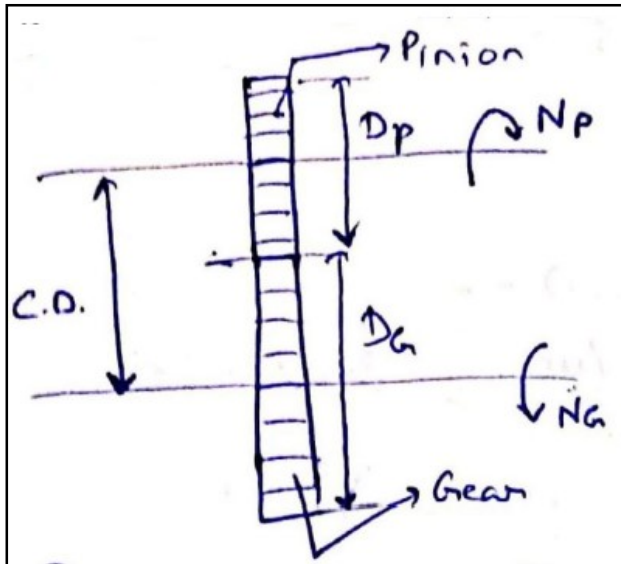 Pinion
Dp
NP
C.D.
DG
NG
Gear